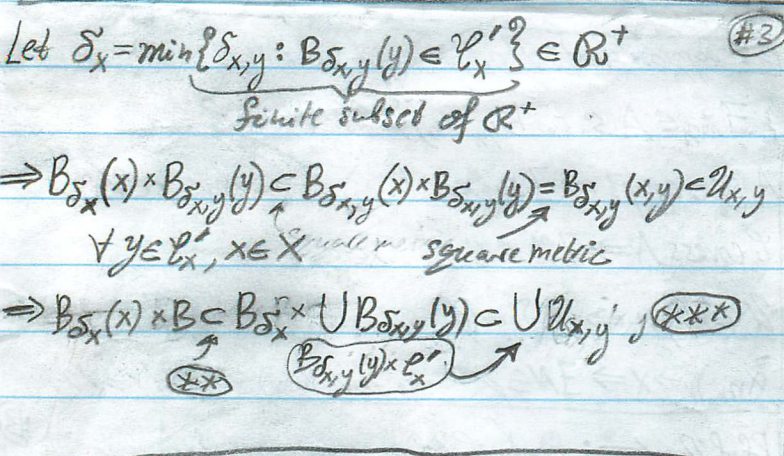 #3
Let δₓ = min{δₓ,ᵧ : B_δₓ,ᵧ(y) ∈ 𝒞ₓ'} ∈ ℝ⁺
finite subset of ℝ⁺
⇒ B_δₓ(x) × B_δₓ,ᵧ(y) ⊂ B_δₓ,ᵧ(x) × B_δₓ,ᵧ(y) = B_δₓ,ᵧ(x,y) ⊂ 𝒰ₓ,ᵧ
∀ y ∈ 𝒞ₓ', x ∈ X square metric
⇒ B_δₓ(x) × B ⊂ B_δₓ × ⋃ B_δₓ,ᵧ(y) ⊂ ⋃ 𝒰ₓ,ᵧ , ***
** B_δₓ,ᵧ(y) × 𝒞ₓ'